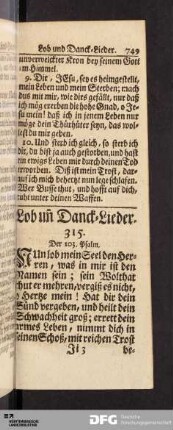 Lob und Danck-Lieder. 749
unverwelckter Kron bey seinem Gott
im Himmel.
9. Dir, JEsu, sey es heimgestellt,
mein Leben und mein Sterben; mach
es mit mir, wie dirs gefällt, nur daß
ich mög ererben die hohe Gnad, o Je-
su mein! daß ich in jenem Leben nur
möge dein Thürhüter seyn, das wol-
lest du mir geben.
10. Und sterb ich gleich, so sterb ich
dir, du bist ja auch gestorben, und hast
ein ewigs Leben mir durch deinen Tod
erworben. Diß ist mein Trost, dar-
auf ich mich behertzt nun lege schlafen.
Wer Busse thut, und hofft auf dich,
ruht unter deinen Waffen.
Lob uñ Danck-Lieder.
315.
Der 103. Psalm.
NUn lob mein Seel den Her-
ren, was in mir ist den
Namen sein; sein Wolthat
thut er mehren, vergiß es nicht,
o Hertze mein! Hat dir dein
Sünd vergeben, und heilt dein
Schwachheit groß; errett dein
armes Leben, nimmt dich in
seinen Schoß, mit reichen Trost
Ji 3 be-
DFG Deutsche
Forschungsgemeinschaft